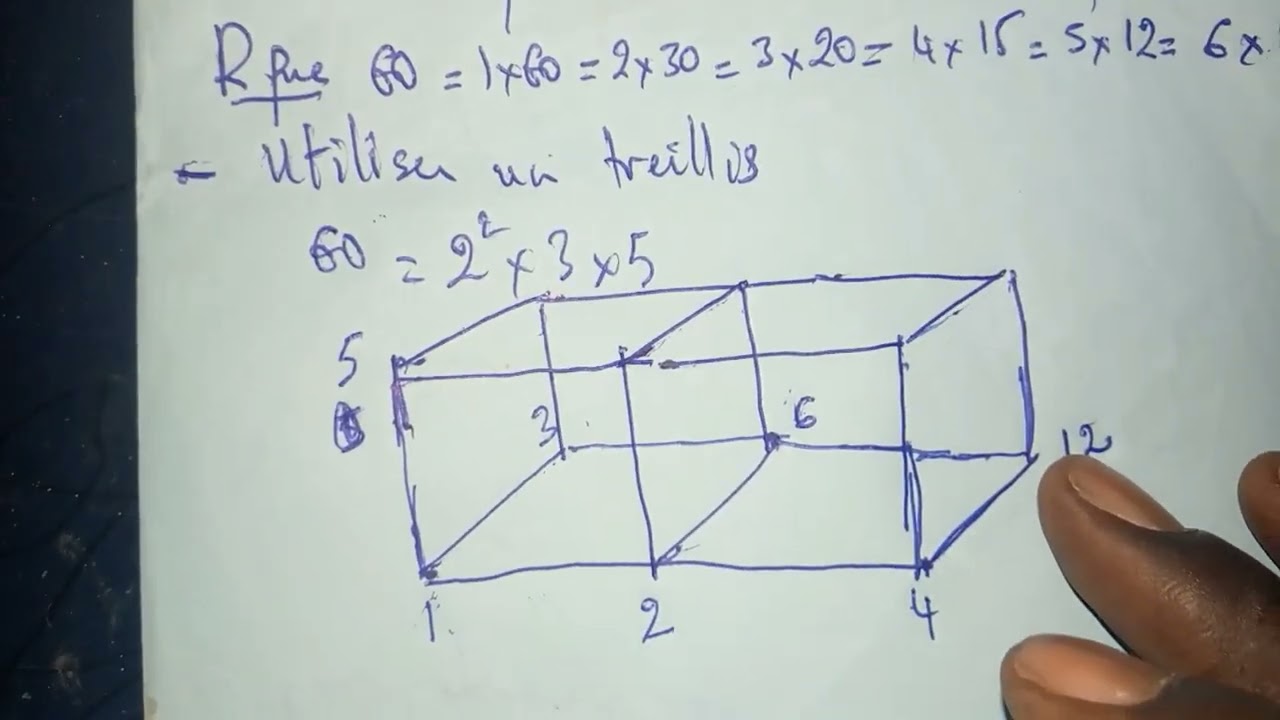 Rque 60 = 1×60 = 2×30 = 3×20 = 4×15 = 5×12 = 6×
- Utiliser un treillis
60 = 2² × 3 × 5
5
3 6 12
1 2 4